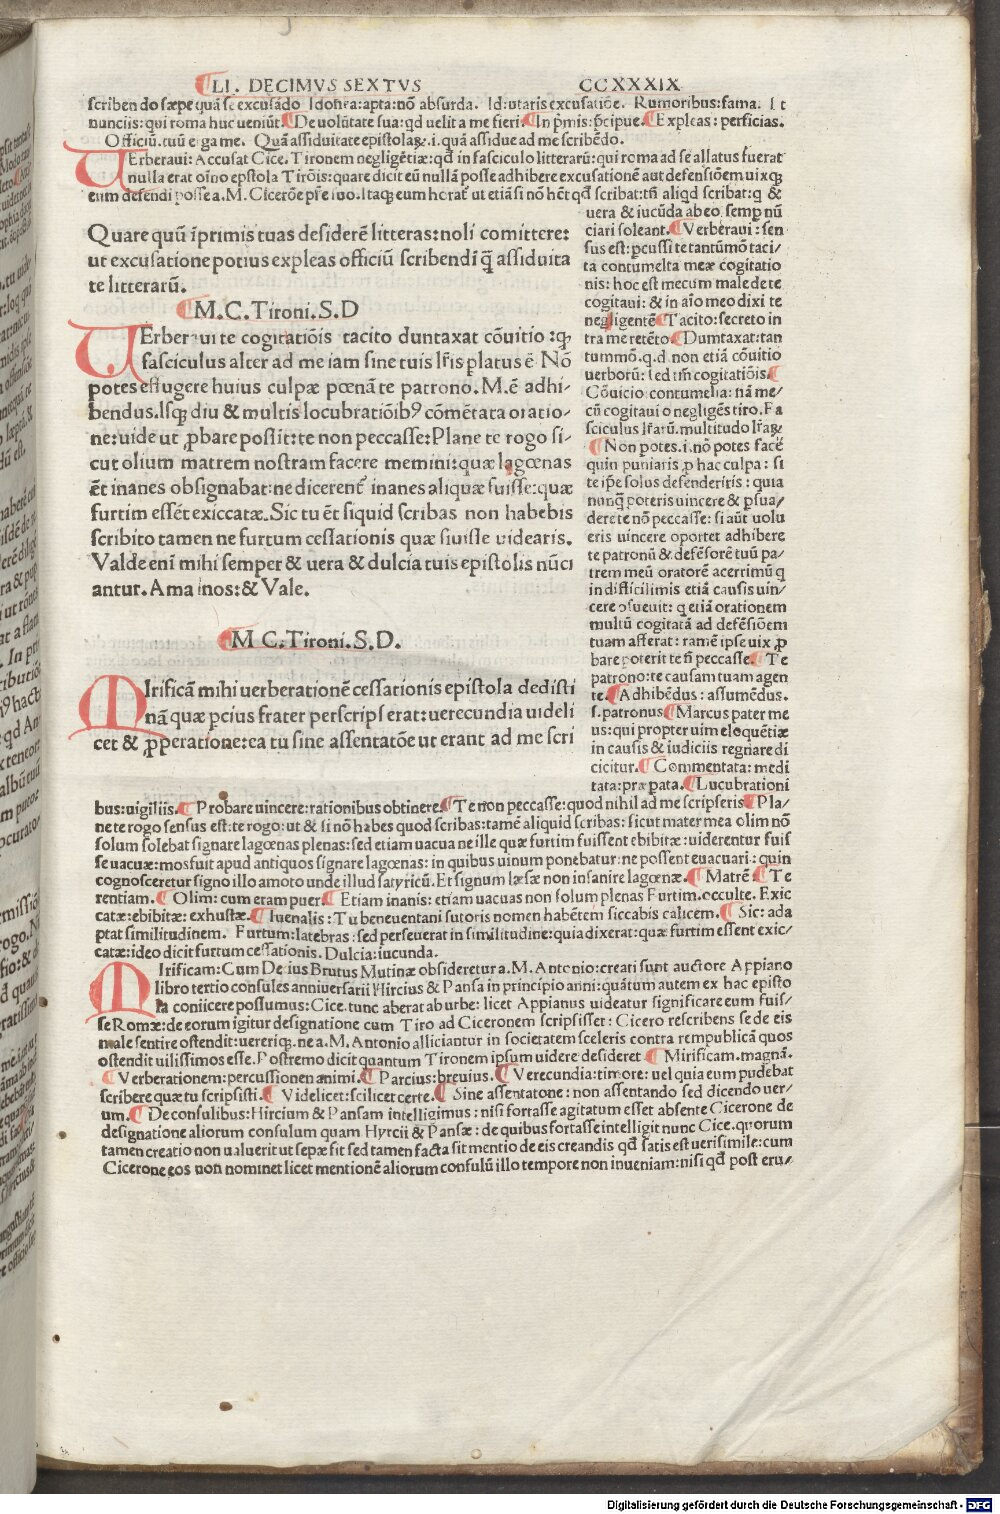 LI. DECIMVS SEXTVS CCXXXIX
scribendo sæpe quã se excusãdo Idonea: apta: nõ absurda. Id: utaris excusatiõe. Rumoribus: fama. Et
nunciis: qui roma huc ueniũt. De uolũtate sua: qd uelit a me fieri. In p̃mis: p̃cipue. Expleas: perficias.
Officiũ. tuũ erga me. Quã assiduitate epistolaꝝ. i. quã assidue ad me scribẽdo.
Verberaui: Accusat Cice. Tironem negligẽtiæ: qđ in fasciculo litterarũ: qui roma ad se allatus fuerat
nulla erat oĩno epstola Tirõis: quare dicit eũ nullã posse adhibere excusationẽ aut defensiõem uixqꝫ
eum defendi posse a. M. Cicerõe pr̃e suo. Itaqꝫ eum horat᷑ ut etiã si nõ hẽt qđ scribat: tñ aliqd scribat: q &
uera & iucũda ab eo semp nũ
ciari soleant. Verberaui: sen
sus est: pcussi te tantũmõ taci
ta contumelia meæ cogitatio
nis: hoc est mecum male de te
cogitaui: & in aĩo meo dixi te
negligentẽ Tacito: secreto in
tra me retẽto. Dumtaxat: tan
tummõ. q. d. non etiã cõuitio
uerborũ: sed tm̃ cogitatiõis.
Cõuicio contumelia: nã me/
cũ cogitaui o negligẽs tiro. Fa
sciculus lr̃arũ. multitudo lr̃aꝝ
Non potes. i. nõ potes facẽ
quin puniaris ꝑ hac culpa: si
te ip̃e solus defenderiris: quia
nunq̃ poteris uincere & ꝑsua/
dere te nõ peccasse: si aũt uolu
eris uincere oportet adhibere
te patronũ & defẽsorẽ tuũ pa/
trem meũ oratorẽ acerrimũ q
in difficilimis etiã causis uin/
cere ↄsueuit: q etiã orationem
multũ cogitatã ad defẽsiõem
tuam afferat: tamẽ ipse uix ꝓ
bare poterit te ñ peccasse. Te
patrono: te causam tuam agen
te. Adhibẽdus: assumẽdus.
s. patronus Marcus pater me
us: qui propter uim eloquẽtiæ
in causis & iudiciis regnare di
cicitur. Commentata: medi
tata: præpata. Lucubrationi
Quare quũ ĩprimis tuas desiderẽ litteras: noli comittere:
ut excusatione potius expleas officiũ scribendi q̃ assiduita
te litterarũ.
M. C. Tironi. S. D
Verberaui te cogitatiõis tacito duntaxat cõuitio: qꝫ
fasciculus alter ad me iam sine tuis lr̃is platus ẽ Nõ
potes effugere huius culpæ pœnã te patrono. M. ẽ adhi-
bendus. Isqꝫ diu & multis locubratiõibꝰ cõmẽtata oratio/
ne: uide ut ꝓbare possit: te non peccasse: Plane te rogo si/
cut olium matrem nostram facere memini: quæ lagœnas
ẽt inanes obsignabat: ne dicerent᷑ inanes aliquæ fuisse: quæ
furtim essẽt exiccatæ. Sic tu ẽt siquid scribas non habebis
scribito tamen ne furtum cessationis quæsiuisse uidearis.
Valde enĩ mihi semper & uera & dulcia tuis epistolis nũci
antur. Ama nos: & Vale.
M C. Tironi. S. D.
Mirificã mihi uerberationẽ cessationis epistola dedisti
nã quæ pcius frater perscripserat: uerecundia uideli
cet & ꝓperatione: ea tu sine assentatõe ut erant ad me scri
bus: uigiliis. Probare uincere: rationibus obtinere. Te non peccasse: quod nihil ad me scripseris Pla/
ne te rogo sensus est: te rogo: ut & si nõ habes quod scribas: tamẽ aliquid scribas: sicut mater mea olim nõ
solum solebat signare lagœnas plenas: sed etiam uacua ne ille quæ furtim fuissent ebibitæ: uiderentur fuis
se uacuæ: mos fuit apud antiquos signare lagœnas: in quibus uinum ponebatur: ne possent euacuari: quin
cognosceretur signo illo amoto unde illud satyricũ. Et signum læsæ non insanire lagœnæ. Matrẽ Te
rentiam. Olim: cum etram puer. Etiam inanis: etiam uacuas non solum plenas Furtim. occulte. Exic
catæ: ebibitæ: exhustæ. Iuenalis: Tu beneuentani sutoris nomen habẽtem siccabis calicem. Sic: ada
ptat similitudinem. Furtum: latebras: sed perseuerat in similitudine: quia dixerat: quæ furtim essent exic/
catæ: ideo dicit furtum cessationis. Dulcia: iucunda.
Mirificam: Cum Decius Brutus Mutinæ obsideretur a. M. Antonio: creati sunt auctore Appiano
libro tertio consules anniuersarii Hircius & Pansa in principio anni: quãtum autem ex hac episto
la coniicere possumus: Cice. tunc aberat ab urbe: licet Appianus uideatur significare eum fuis/
se Romæ: de eorum igitur designatione cum Tiro ad Ciceronem scripsisset: Cicero rescribens se de eis
male sentire ostendit: uereriqꝫ. ne a. M. Antonio alliciantur in societatem sceleris contra rempublicã quos
ostendit uilissimos esse. Postremo dicit quantum Tironem ipsum uidere desideret Mirificam. magnã.
Verberationem: percussionen animi. Parcius: breuius. Verecundia: timore: uel quia eum pudebat
scribere quæ tu scripsisti. Videlicet: scilicet certe. Sine assentatone: non assentando sed dicendo uer/
um. De consulibus: Hircium & Pansam intelligimus: nisi fortasse agitatum esset absente Cicerone de
designatione aliorum consulum quam Hyrcii & Pansæ: de quibus fortasse intelligit nunc Cice. quorum
tamen creatio non ualuerit ut sepæ fit sed tamen facta sit mentio de eis creandis qđ satis est uerisimile: cum
Cicerone eos non nominet licet mentionẽ aliorum consulũ illo tempore non inueniam: nisi qđ post eru/
Digitalisierung gefördert durch die Deutsche Forschungsgemeinschaft - DFG